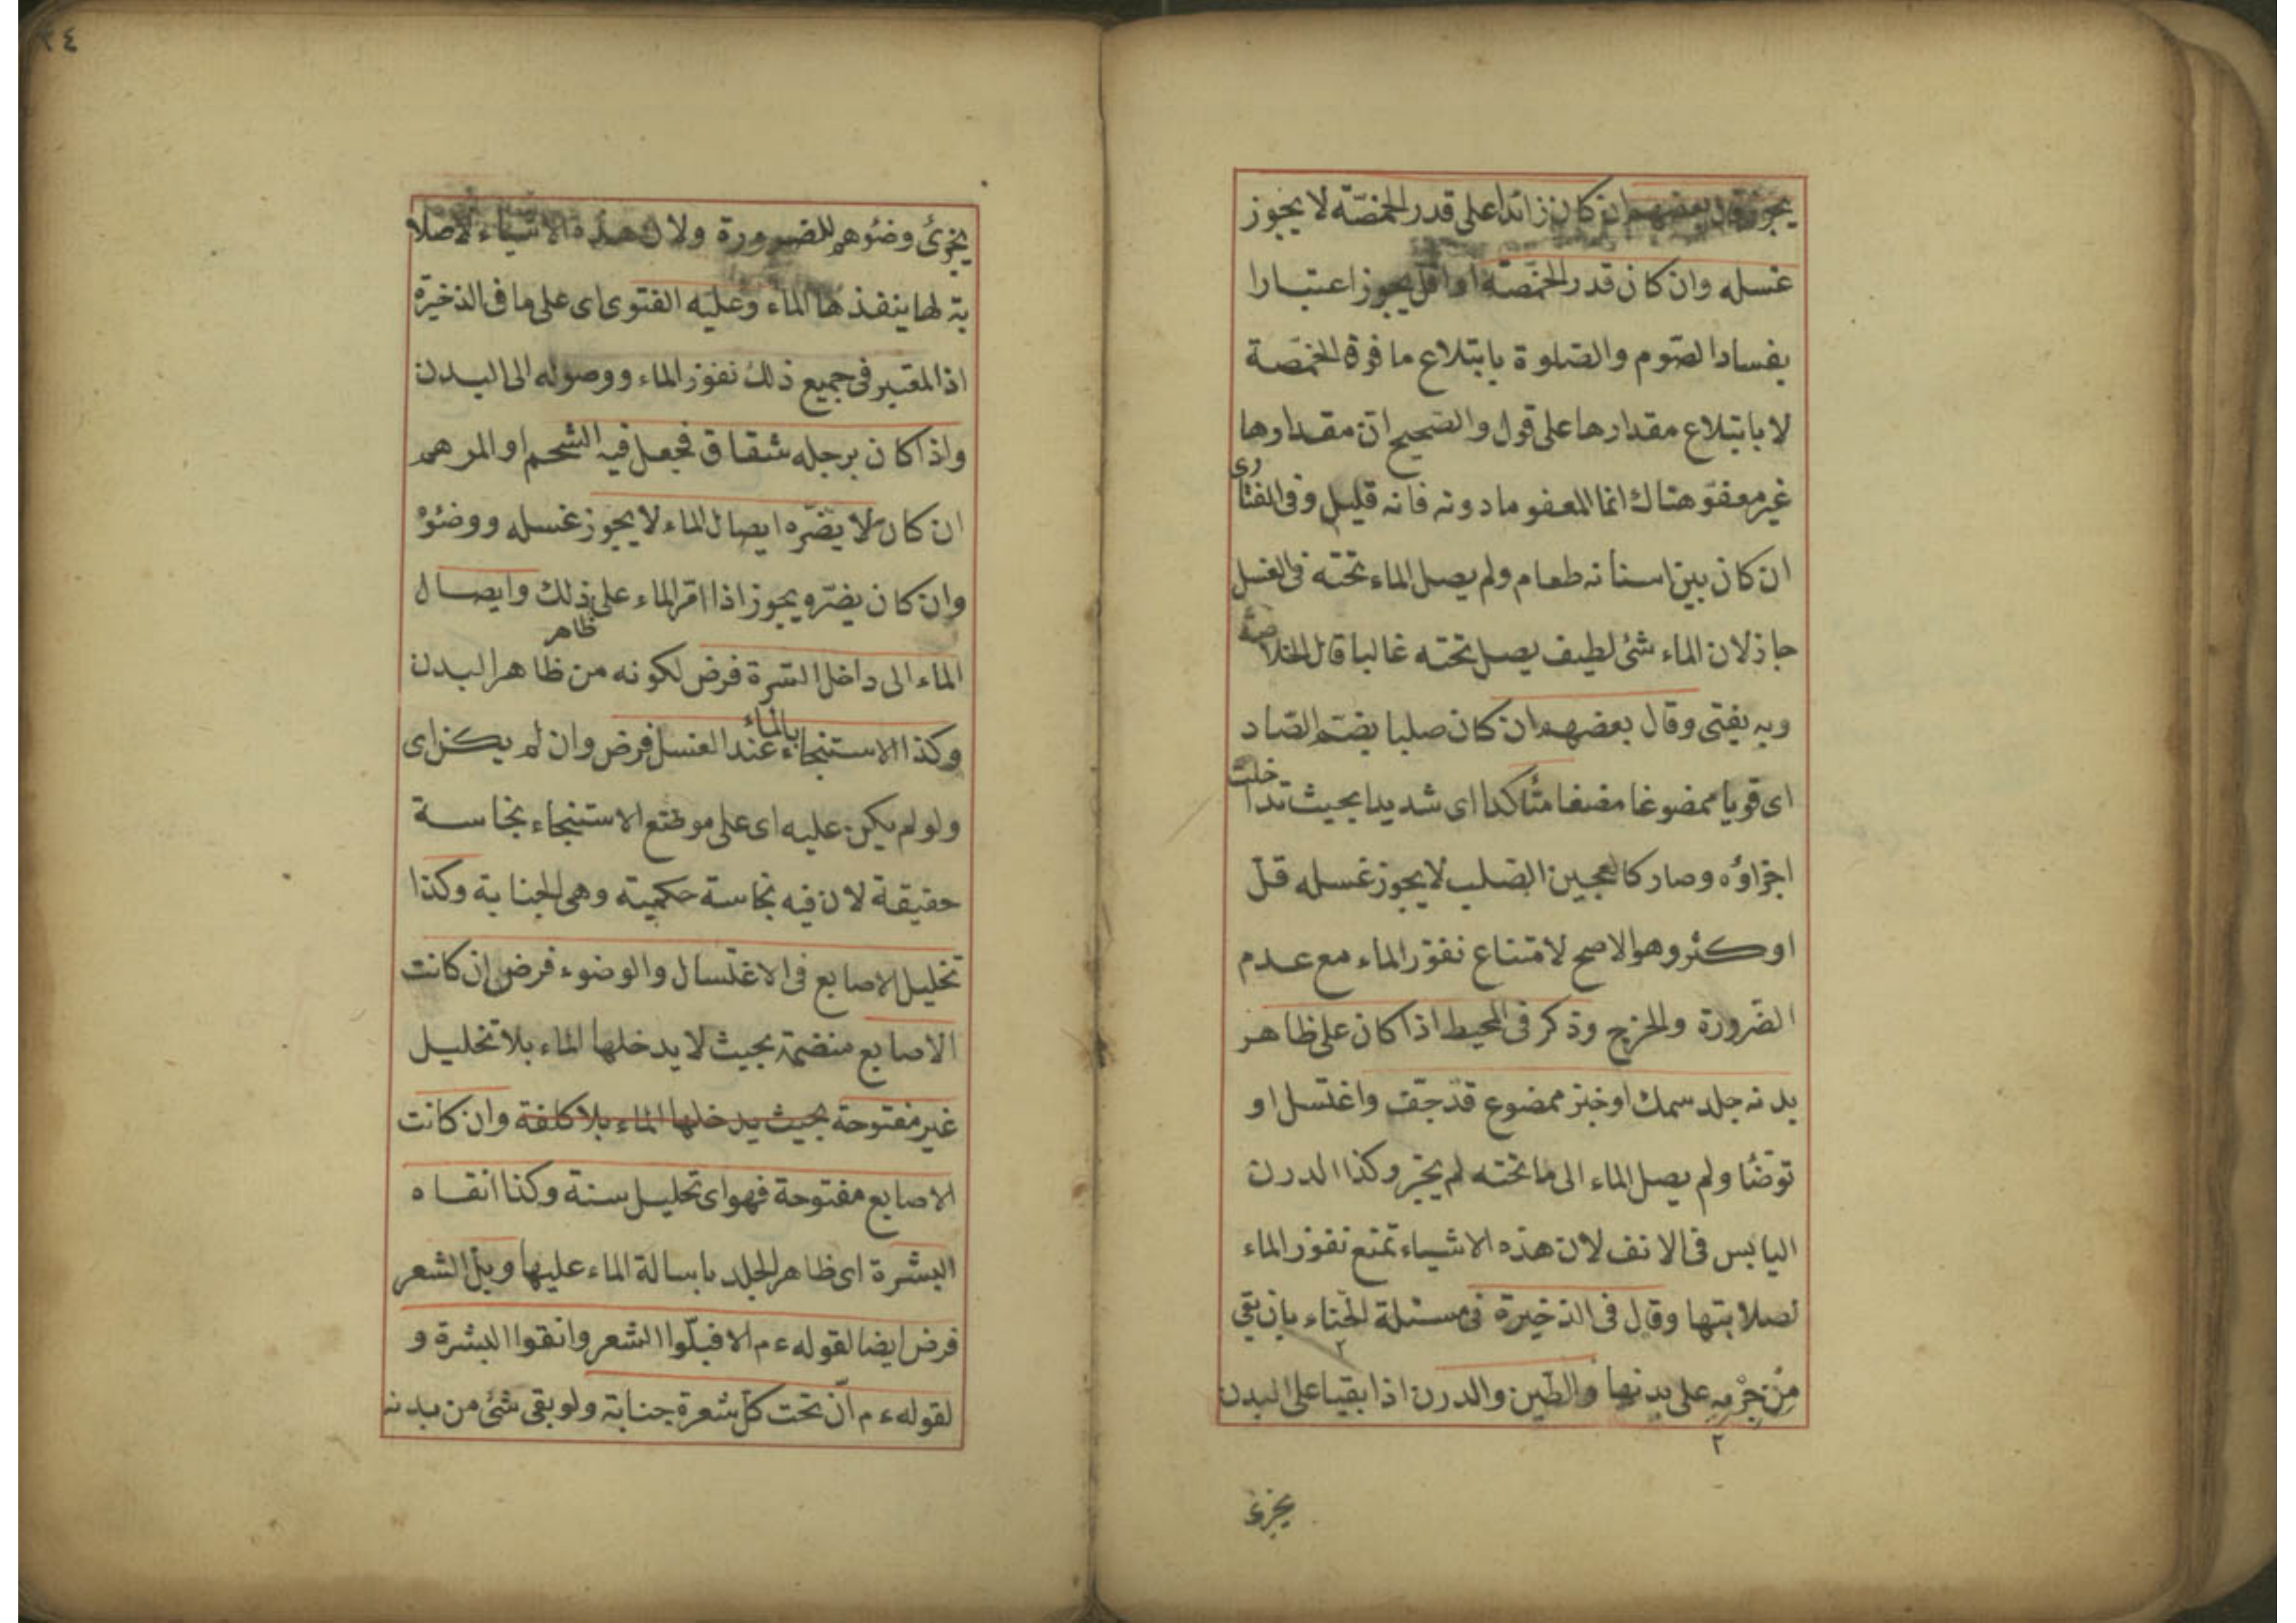 يجوز وقال بعضهم ان كان زائدا على قدر الحمّصّة لا يجوز
غسله وان كان قدر الحمّصّة او اقل يجوز اعتبارا
بفساد الصّوم والصّلوة بابتلاع ما فوق الحمّصة
لا بابتلاع مقدارها على قول والصّحيح انّ مقدارها
غير معفوّ هناك انما المعفو ما دونه فانه قليل وفى الفتاوى
ان كان بين اسنانه طعام ولم يصل الماء تحته فى الغسل
جاز لان الماء شئ لطيف يصل تحته غالبا قال الخلاصة
وبه يفتى وقال بعضهم ان كان صلبا بضمّ الصّاد
اى قويا ممضوغا مضغا متأكدا اى شديدا بحيث تداخلت
اجزاؤه وصار كالعجين الصّلب لا يجوز غسله قلّ
او كثر وهو الاصح لامتناع نفوذ الماء مع عدم
الضّرورة والحرج وذكر فى المحيط اذا كان على ظاهر
بدنه جلد سمك او خبز ممضوع قد جفّ واغتسل او
توضّأ ولم يصل الماء الى ما تحته لم يجز وكذا الدرن
اليابس فى الانف لان هذه الاشياء تمنع نفوذ الماء
لصلابتها وقال فى الذخيرة فى مسئلة الحنّاء بان بقى
من جرمه على بدنها والطّين والدرن اذا بقيا على البدن
٢
٢
يجزئ
٣٤
يجزئ وضئوهم للضرورة ولان هذه الاشياء لاصلا
بة لها ينفذ ها الماء وعليه الفتوى اى على ما فى الذخيرة
اذ المعتبر فى جميع ذلك نفوذ الماء ووصوله الى البدن
واذا كان برجله شقاق فجعل فيه الشحم او المرهم
ان كان لا يضرّه ايصال الماء لا يجوز غسله ووضئوه
وان كان يضرّه يجوز اذا امرّ الماء على ذلك وايصال
ظاهر
الماء الى داخل السّرة فرض لكونه من ظاهر البدن
بالماء
وكذا الاستنجاء عند الغسل فرض وان لم يكن اى
ولو لم يكن عليه اى على موضع الاستنجاء نجاسة
حقيقة لان فيه نجاسة حكميّة وهى الجنابة وكذا
تخليل الاصابع فى الاغتسال والوضوء فرض ان كانت
الاصابع منضمّة بحيث لا يدخلها الماء بلا تخليل
غير مفتوحة بحيث يدخلها الماء بلا كلفة وان كانت
الاصابع مفتوحة فهو اى تخليل سنة وكذا انقاء
البشرة اى ظاهر الجلد باسالة الماء عليها وبلّ الشعر
فرض ايضا لقوله ءم الا فبلّوا الشعر وانقوا البشرة و
لقوله ءم انّ تحت كلّ شعرة جنابة ولو بقى شئ من بدنه